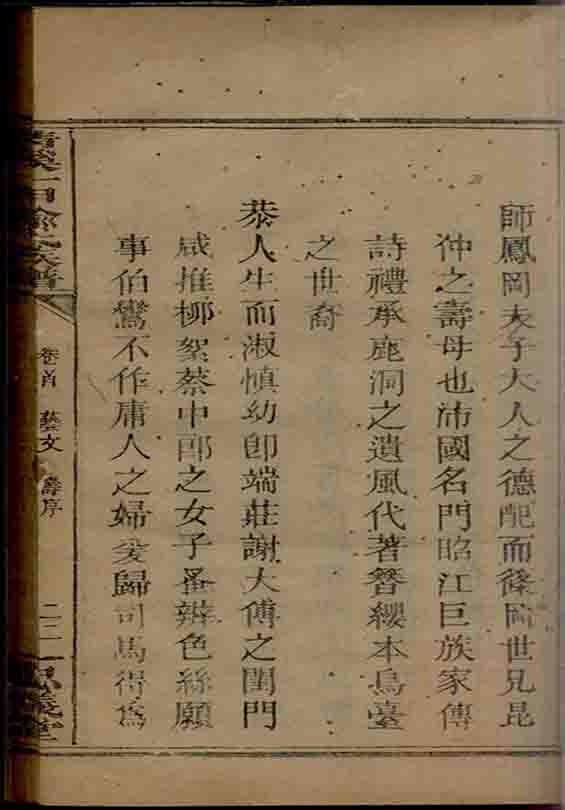 師鳳岡夫子大人之德配而篠臨世兄昆
仲之壽母也沛國名門昭江巨族家傳
詩禮承鹿洞之遺風代著簪纓本烏臺
之世裔
恭人生而淑慎幼卽端莊謝太傅之閨門
咸推柳絮蔡中郎之女子蚤辨色絲願
事伯鸞不作庸人之婦爰歸司馬得爲
卷首 藝文 壽序